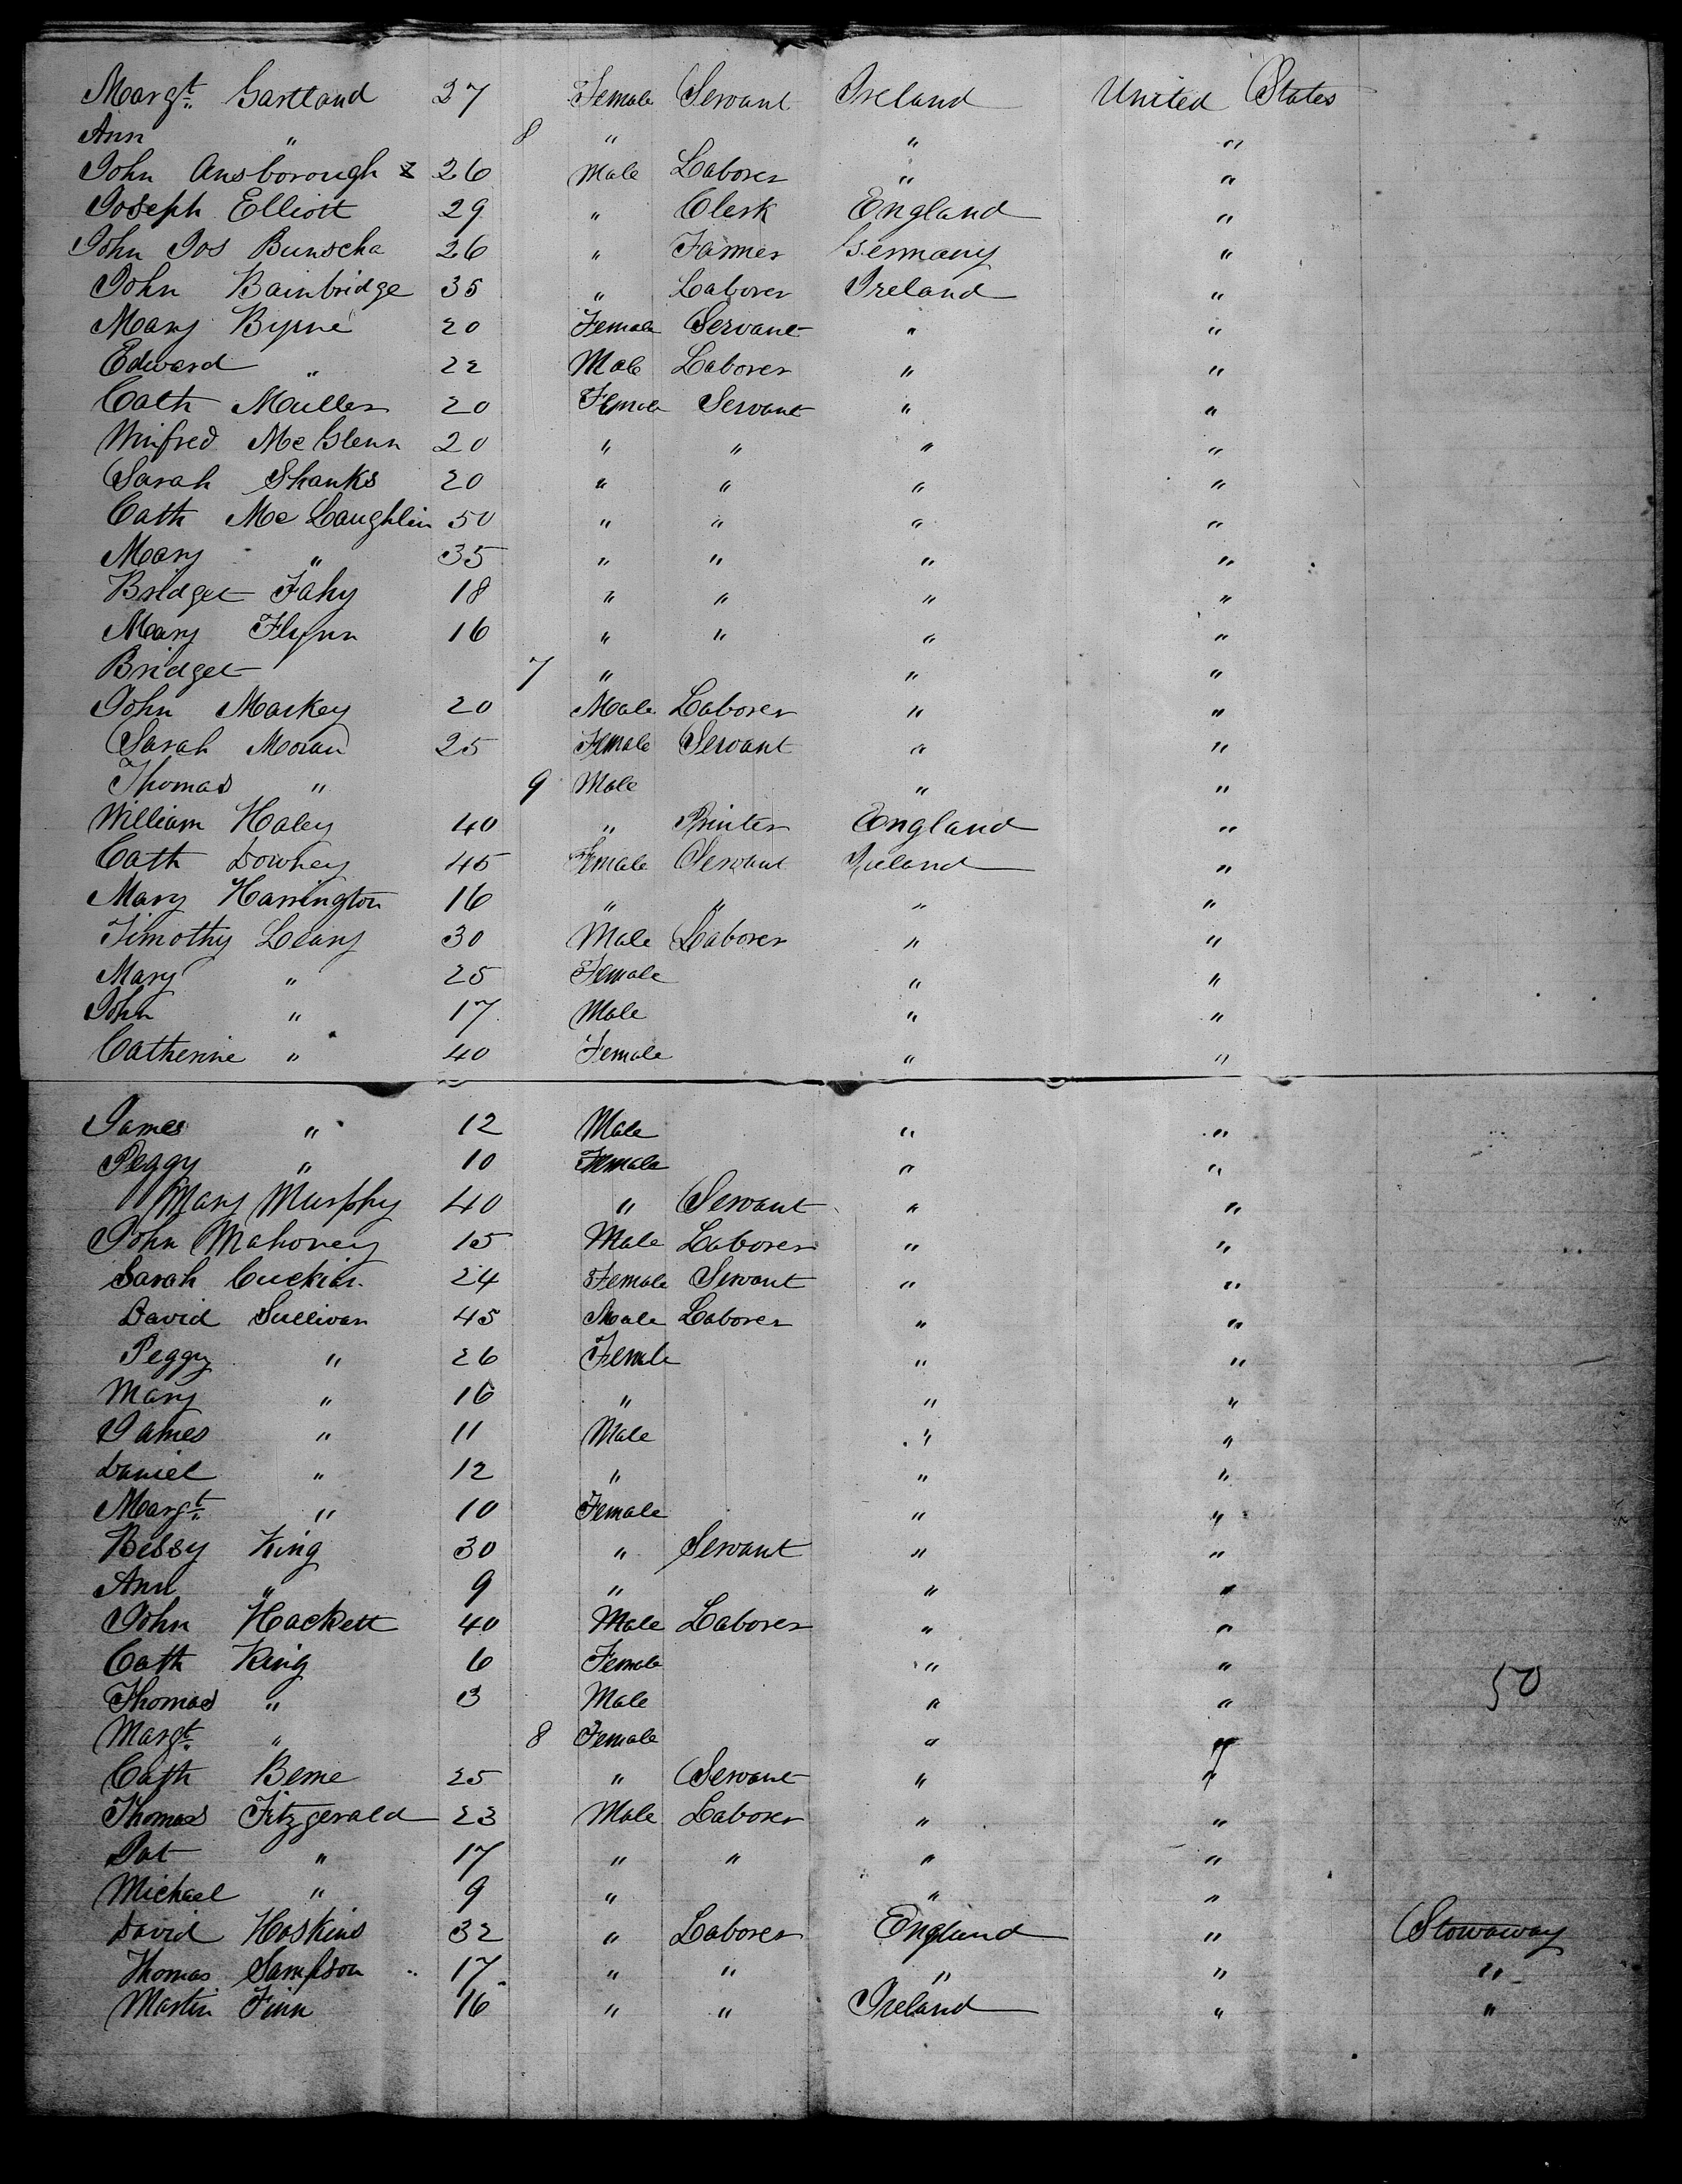 Margt. Gartland 27 Female Servant Ireland United States
Ann " 8 " " "
John Ansborough 26 Male Laborer " "
Joseph Elliott 29 " Clerk England "
John Jos Bunscha 26 " Farmer Germany "
John Bainbridge 35 " Laborer Ireland "
Mary Byrne 20 Female Servant " "
Edward " 22 Male Laborer " "
Cath Muller 20 Female Servant " "
Winifred McGlenn 20 " " " "
Sarah Shanks 20 " " " "
Cath McLaughlin 50 " " " "
Mary " 35 " " " "
Bridget Fahy 18 " " " "
Mary Flynn 16 " " " "
Bridget 7 " " "
John Markey 20 Male Laborer " "
Sarah Moran 25 Female Servant " "
Thomas " 9 Male " "
William Haley 40 " Printer England "
Cath Downey 45 Female Servant Ireland "
Mary Harrington 16 " " " "
Timothy Leary 30 Male Laborer " "
Mary " 25 Female " "
John " 17 Male " "
Catherine " 40 Female " "
James " 12 Male " "
Peggy " 10 Female " "
Mary Murphy 40 " Servant " "
John Mahoney 15 Male Laborer " "
Sarah 24 Female Servant " "
David Sullivan 45 Male Laborer " "
Peggy " 26 Female " "
Mary " 16 " " "
James " 11 Male " "
Daniel " 12 " " "
Margt. " 10 Female " "
Bessy King 30 " Servant " "
Ann " 9 " " "
John Hackett 40 Male Laborer " "
Cath King 6 Female " "
Thomas " 3 Male " " 50
Margt. " 8 Female " "
Cath Berne 25 " Servant " "
Thomas Fitzgerald 23 Male Laborer " "
Pat " 17 " " " "
Michael " 9 " " "
David Hoskins 32 " Laborer England " Stowaway
Thomas Sampson 17 " " " " "
Martin Finn 16 " " Ireland " "